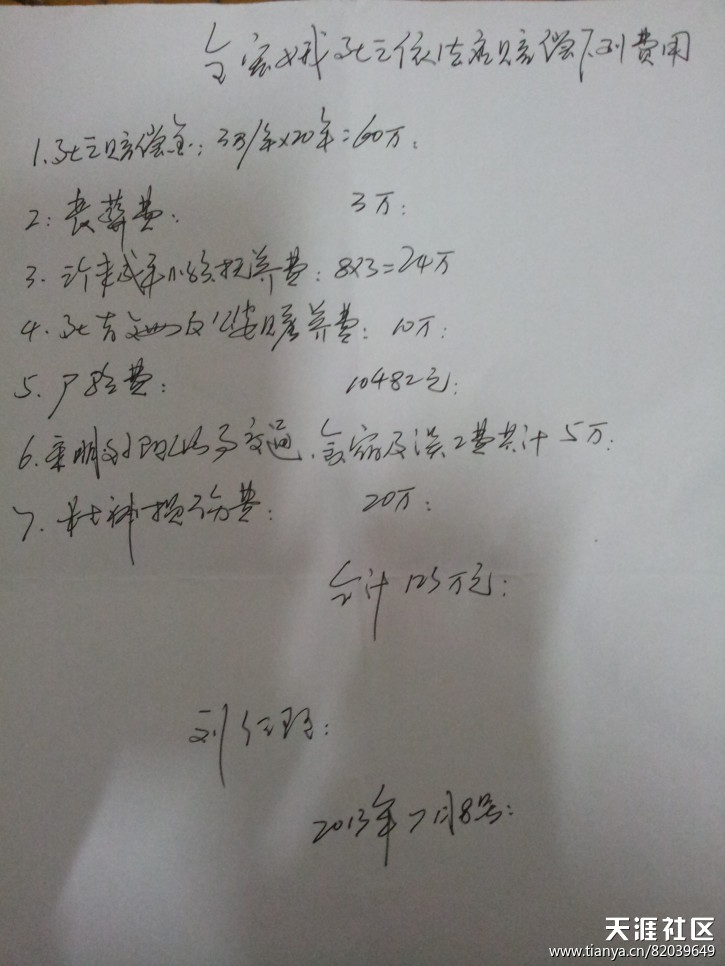 死亡依法应赔偿下列费用
1.死亡赔偿金:3万/年×20年=60万:
2:丧葬费: 3万:
3.三个未成年小孩抚养费:8×3=24万
4.死者 及公婆赡养费:10万:
5.尸检费: 10482元:
6.来 处理 交通、食宿及误工费共计5万:
7.精神损伤费: 20万:
合计123万元:
刘
2013年7月8号:
天涯社区
www.tianya.cn/82039649